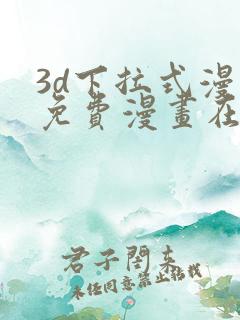 3d下拉式漫
免費漫畫在
君子閣来
未经同意禁止转载